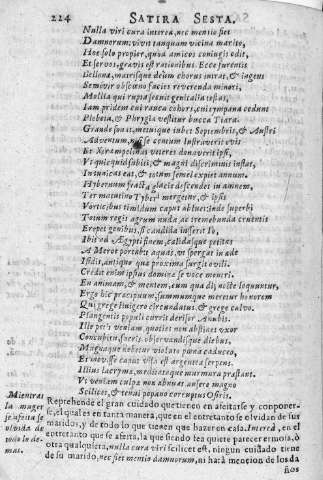 224 SATIRA SESTA.
Nulla viri cura interea, nec mentio fiet
Damnorum, vivit tanquam vicina marito,
Hoc solo propior, quòd amicos coniugis odit,
Et servos, gravis est rationibus. Ecce furentis
Bellona, matrisque deûm chorus intrat, & ingens
Semivir obscœno facies reverenda minori,
Mollia qui rupta secuit genitalia testa,
Iam pridem cui rauca cohors, cui tympana cedunt
Plebeia, & Phrygia vestitur bucca Tiara.
Grande sonat, metuique iubet Septembris, & Austri
Adventum, nisi se centum lustraverit ovis
Et Xerampelinas veteres donaverit ipsi,
Vt quicquid subiti, & magni discriminis instat,
In tunicas eat, & totum semel expiet annum.
Hybernum fracta glacie descendet in amnem,
Ter matutino Tyberi mergetur, & ipsis
Vorticibus timidum caput abluet: inde superbi
Totum regis agrum nuda ac tremebunda cruentis
Erepet genibus, si candida iusserit Io,
Ibit ad Ægypti finem, calidaque petitas
A Meroë portabit aquas, ut spergat in æde
Isidis, antiquo quæ proxima surgit ovili.
Credit enim ipsius domina se voce moneri.
En animam, & mentem, cum qua dij nocte loquuntur,
Ergo hic præcipuum, summumque meretur honorem
Qui grege linigero circundatus, & grege calvo.
Plangentis populi currit derisor Anubis.
Ille petit veniam, quoties non abstinet uxor
Concubitu, sacris observandisque diebus,
Magnaque debetur violato pœna caduceo,
Et movisse caput visa est argentea serpens.
Illius lacrymæ, meditataque murmura præstant.
Vt veniam culpæ non abnuat ansere magno
Scilicet, & tenui popano corruptus Osiris.
Mientras
la muger
se afeita se
olvida de
todo lo de-
mas.
Reprehende el gran cuidado que tienen en afeitarse y conponer-
se, el qual es en tanta manera, que en el entretanto se olvidan de sus
maridos, y de todo lo que tienen que hazer en casa. Interea, en el
entretanto que se afeita, la que siendo fea quiere parecer ermosa, ò
otra qualquiera, nulla cura viri scilicet est, ningun cuidado tiene
de su marido, nec fiet mentio damnorum, ni hará mencion de los da
ños